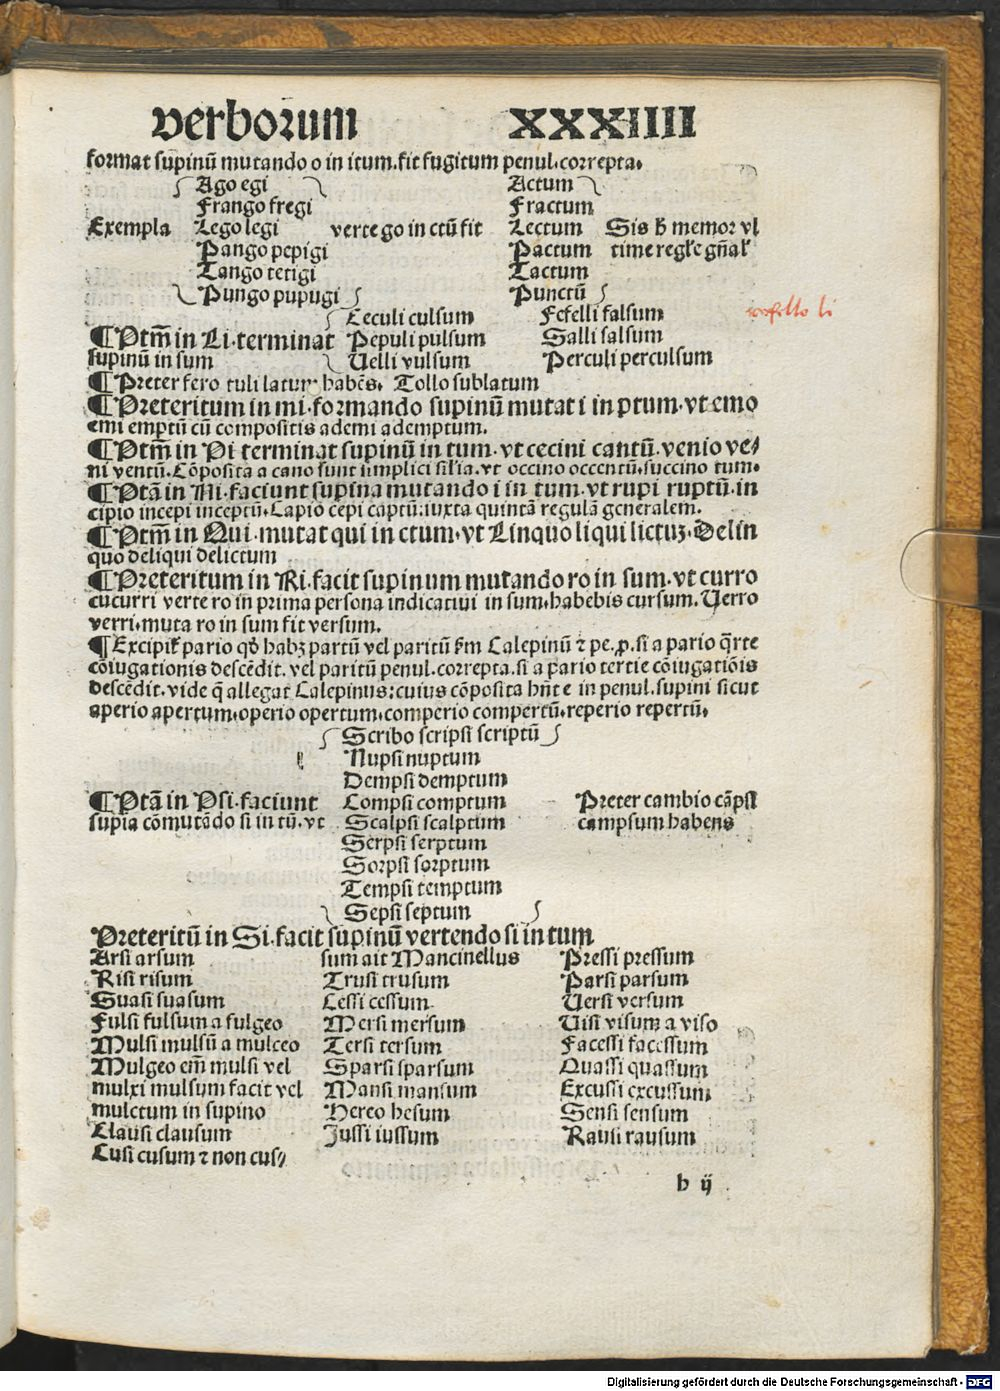 verborum XXXIIII
format supinū mutando o in itum.fit fugitum penul.correpta.
Ago egi Actum
Frango fregi Fractum
Exempla Lego legi verte go in ctū fit Lectum Sis h̄ memor vl
Pango pepigi Pactum time regl'e gn̄al'
Tango tetigi Tactum
Pungo pupugi Punctū
Ceculi culsum Fefelli falsum
¶ Ptm̄ in Li.terminat Pepuli pulsum Salli salsum
supinū in sum Uelli vulsum Perculi perculsum
¶ Preter fero tuli latum habēs. Tollo sublatum
¶ Preteritum in mi.formando supinū mutat i in ptum.vt emo
emi emptū cū compositis ademi ademptum.
¶ Ptm̄ in Ni terminat supinū in tum.vt cecini cantū.venio ve/
ni ventū.Cōposita a cano sunt simplici sil'ia.vt occino occentū.succino tum.
¶ Ptā in Pi.faciunt supina mutando i in tum.vt rupi ruptū.in
cipio incepi inceptū.Capio cepi captū:iuxta quintā regulā generalem.
¶ Ptm̄ in Qui.mutat qui in ctum.vt Linquo liqui lictuȝ.Delin
quo deliqui delictum
¶ Preteritum in Ri.facit supinum mutando ro in sum.vt curro
cucurri verte ro in prima persona indicatiui in sum.habebis cursum.Uerro
verri.muta ro in sum fit versum.
¶ Excipit' pario qd' habȝ partū vel paritū km̄ Calepinū ⁊ pe.p.si a pario q̄rte
cōiugationis descēdit.vel paritū penul.correpta.si a pario tertie cōiugatiōis
descēdit.vide q̄ allegat Calepinus:cuius cōposita hn̄t e in penul.supini sicut
aperio apertum.operio opertum.comperio compertū.reperio repertū.
Scribo scripsi scriptū
Nupsi nuptum
Dempsi demptum
¶ Ptā in Psi.faciunt Compsi comptum Preter cambio cāpsi
supīa cōmutādo si in tū.vt Scalpsi scalptum campsum habens
Serpsi serptum
Sorpsi sorptum
Tempsi temptum
Sepsi septum
Preteritū in Si.facit supinū vertendo si in tum
Arsi arsum sum ait Mancinellus Pressi pressum
Risi risum Trusi trusum Parsi parsum
Suasi suasum Cessi cessum Uersi versum
Fulsi fulsum a fulgeo Mersi mersum Uisi visum a viso
Mulsi mulsū a mulceo Tersi tersum Facessi facessum
Mulgeo em̄ mulsi vel Sparsi sparsum Quassi quassum
mulxi mulsum facit vel Mansi mansum Excussi excussum
mulctum in supino Hereo hesum Sensi sensum
Clausi clausum Jussi iussum Rausi rausum
Cusi cusum ⁊ non cus/
h ij
Digitalisierung gefördert durch die Deutsche Forschungsgemeinschaft - DFG